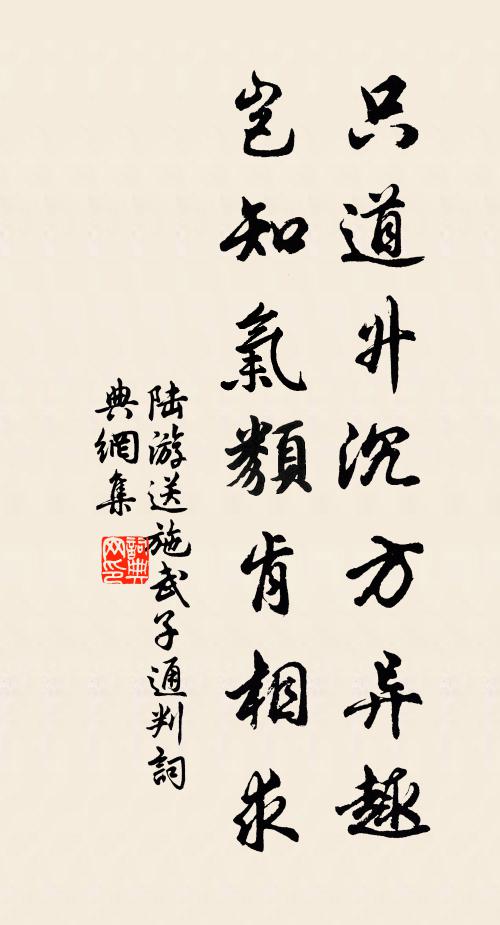 只道升沉方异趣
岂知氣類肯相求
陆游送施武子通判詞
典網集
詞典網印